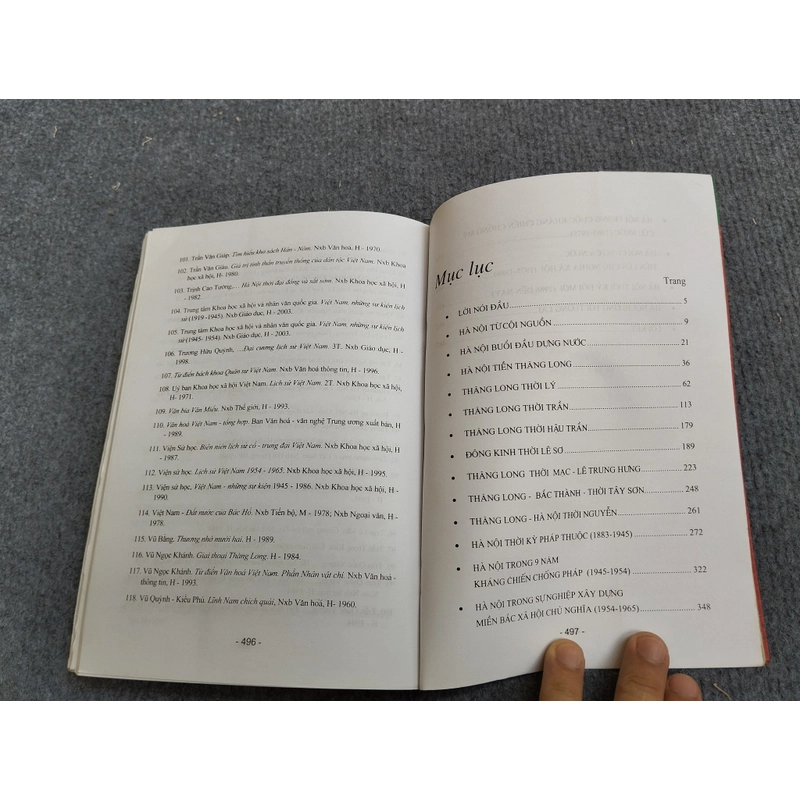 101. Trần Văn Giáp. Tìm hiểu kho sách Hán - Nôm. Nxb Văn hoá, H - 1970.
102. Trần Văn Giàu. Giá trị tinh thần truyền thống của dân tộc Việt Nam. Nxb Khoa
học xã hội, H- 1980.
103. Trịnh Cao Tưởng,... Hà Nội thời đại đồng và sắt sớm. Nxb Khoa học xã hội, H
- 1982.
104. Trung tâm Khoa học xã hội và nhân văn quốc gia. Việt Nam, những sự kiện lịch
sử (1919 -1945). Nxb Giáo dục, H - 2003.
105. Trung tâm Khoa học xã hội và nhân văn quốc gia. Việt Nam, những sự kiện lịch
sử (1945- 1954). Nxb Giáo dục, H - 2003.
106. Trương Hữu Quýnh, ...Đại cương lịch sử Việt Nam. 3T. Nxb Giáo dục, H -
1998.
107. Từ điển bách khoa Quân sự Việt Nam. Nxb Văn hoá thông tin, H - 1996.
108. Uỷ ban Khoa học xã hội Việt Nam. Lịch sử Việt Nam. 2T. Nxb Khoa học xã hội,
H- 1971.
109. Văn bia Văn Miếu. Nxb Thế giới, H - 1993.
110. Văn hoá Việt Nam - tổng hợp. Ban Văn hoá - văn nghệ Trung ương xuất bản, H
- 1989.
111. Viện Sử học. Biên niên lịch sử cổ - trung đại Việt Nam. Nxb Khoa học xã hội, H
- 1987.
112. Viện sử học. Lịch sử Việt Nam 1954 - 1965. Nxb Khoa học xã hội, H - 1995.
113. Viện sử học, Việt Nam - những sự kiện 1945 - 1986. Nxb Khoa học xã hội, H -
1990.
114. Việt Nam - Đất nước của Bác Hồ. Nxb Tiến bộ, M - 1978; Nxb Ngoại văn, H -
1978.
115. Vũ Bằng. Thương nhớ mười hai. H - 1989.
116. Vũ Ngọc Khánh. Giai thoại Thăng Long. H - 1984.
117. Vũ Ngọc Khánh. Từ điển Văn hoá Việt Nam. Phần Nhân vật chí. Nxb Văn hoá -
thông tin, H - 1993.
118. Vũ Quỳnh - Kiều Phú. Lĩnh Nam chích quái, Nxb Văn hoá, H - 1960.
- 496 -
Mục lục
Trang
• LỜI NÓI ĐẦU 5
• HÀ NỘI TỪ CỘI NGUỒN 9
• HÀ NỘI BUỔI ĐẦU DỰNG NƯỚC 21
• HÀ NỘI TIỀN THĂNG LONG 36
• THĂNG LONG THỜI LÝ 62
• THĂNG LONG THỜI TRẦN 113
• THĂNG LONG THỜI HẬU TRẦN 179
• ĐÔNG KINH THỜI LÊ SƠ 189
• THĂNG LONG THỜI MẠC - LÊ TRUNG HƯNG 223
• THĂNG LONG - BẮC THÀNH - THỜI TÂY SƠN 248
• THĂNG LONG - HÀ NỘI THỜI NGUYỄN 261
• HÀ NỘI THỜI KỲ PHÁP THUỘC (1883-1945) 272
• HÀ NỘI TRONG 9 NĂM
KHÁNG CHIẾN CHỐNG PHÁP (1945-1954) 322
• HÀ NỘI TRONG SỰ NGHIỆP XÂY DỰNG
MIỀN BẮC XÃ HỘI CHỦ NGHĨA (1954-1965) 348
- 497 -